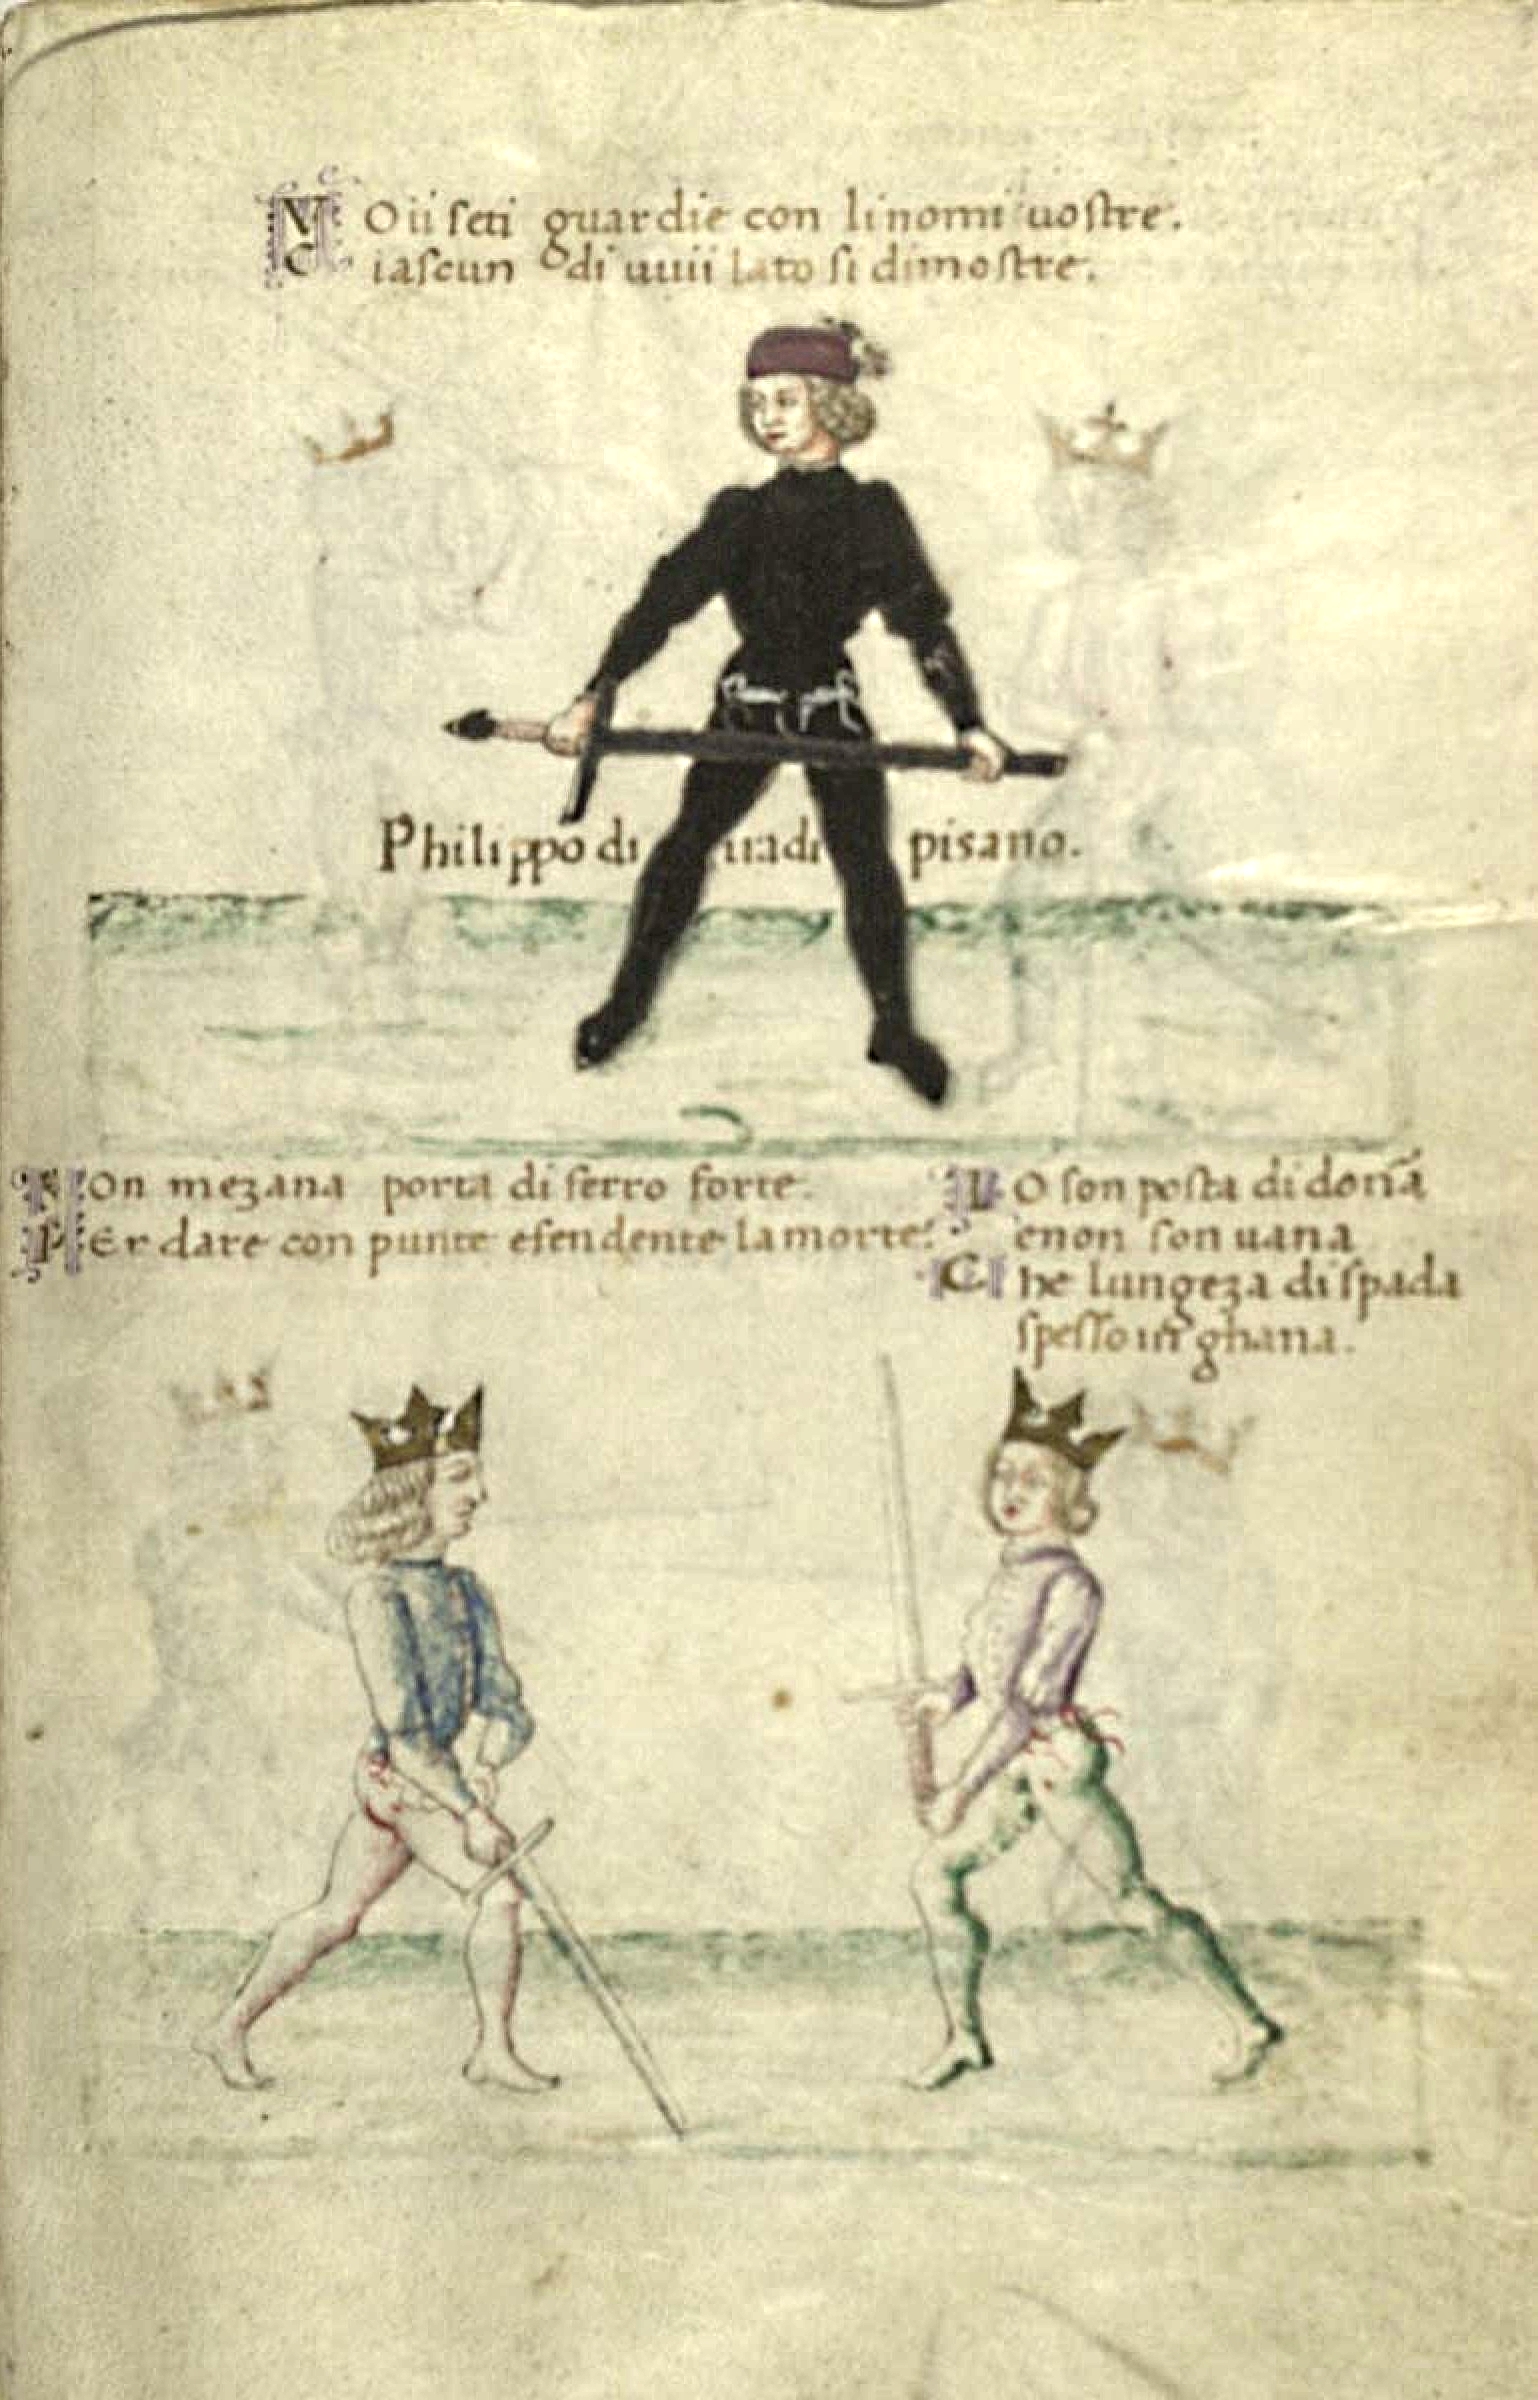 VOii seti guardie con li nomi uostre.
Ciascun di uuii lato si dimostre.
Philippo di uadi pisano.
SOn mezana porta di ferro forte.
PEr dare con punte e fendente la morte.
IO son posta di doña
e non son uana
Che lungeza di spada
spesso inghana.